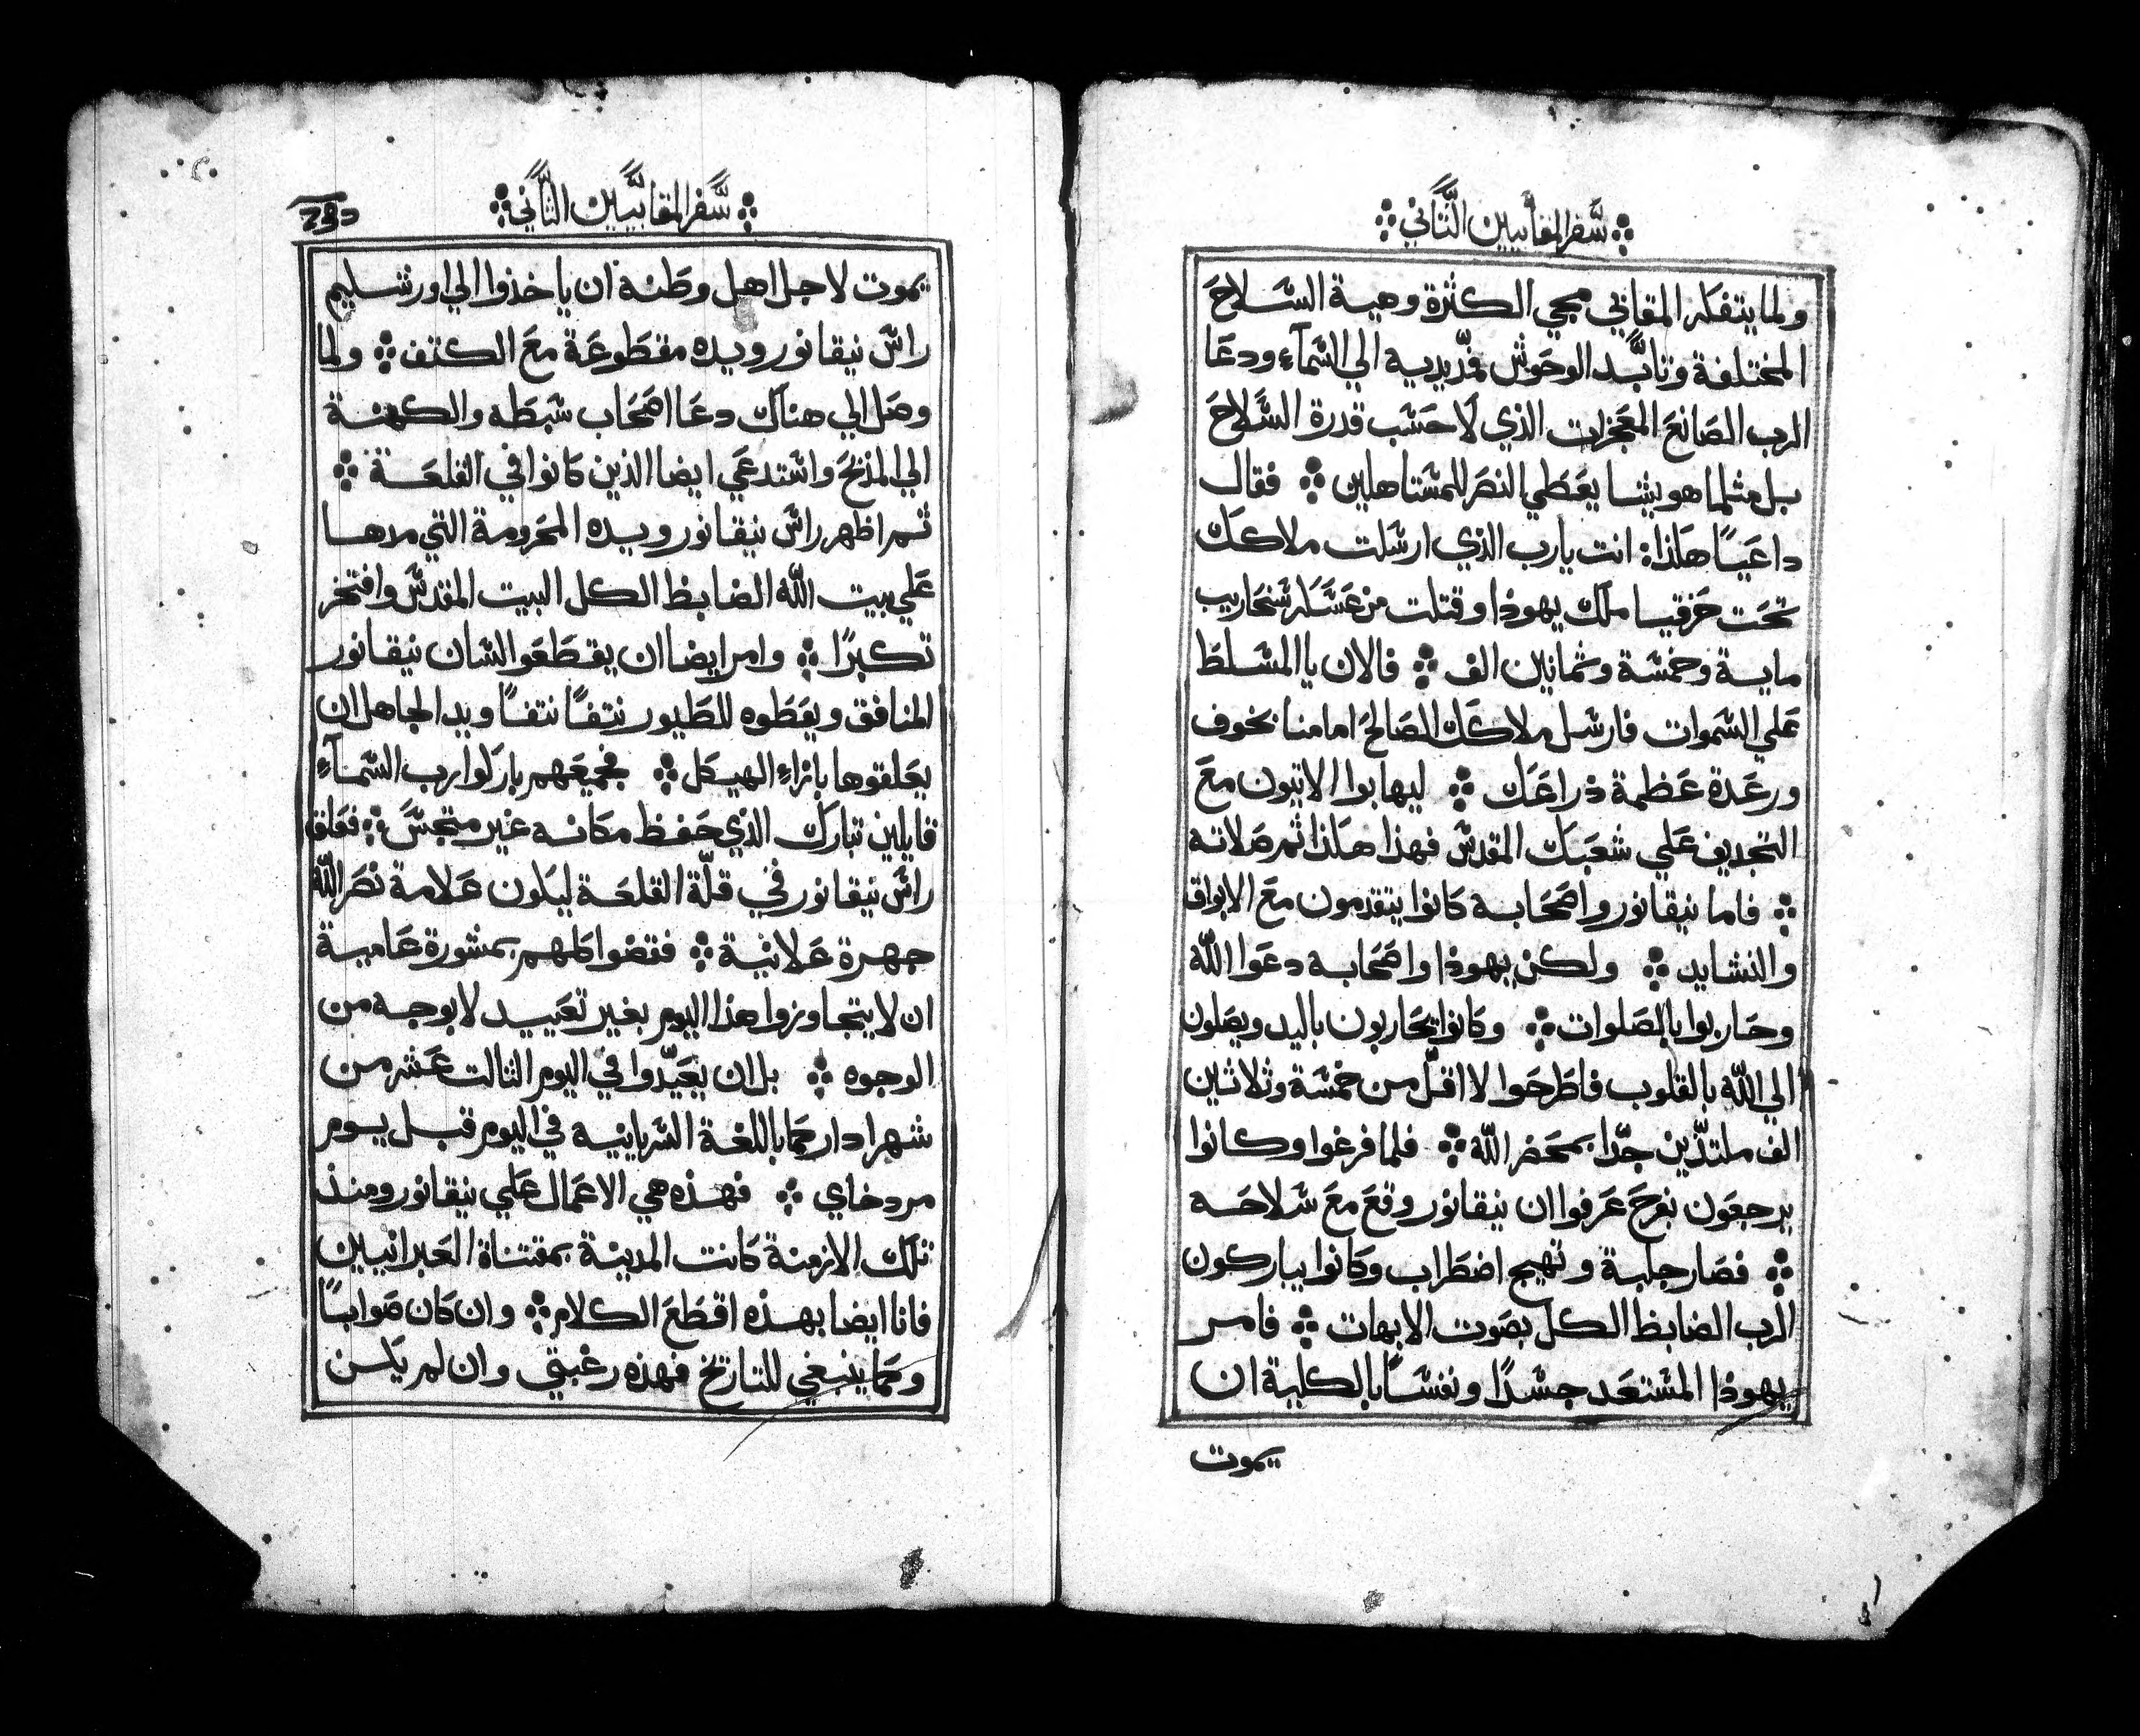 سفر المقابيين الثاني
ولما يتفكر المقابي مجي الكثرة وهيبة السلاح
المختلفة وتأبد الوحوش فمد يديه الي السمآء ودعا
الرب الصانع المعجزات الذي لا حسب قدرة السلاح
بل مثلما هو يشا يعطي النصر للمستاهلين ؞ فقال
داعيًا هكذا: انت يارب الذي ارسلت ملاكك
تحت حزقيا ملك يهوذا وقتلت من عسكر سنحاريب
ماية وخمسة وثمانين الف ؞ فالان يا المسلط
علي السموات فارسل ملاكك الصالح امامنا بخوف
ورعدة عظمة ذراعك ؞ ليهابوا الاتيون مع
التجديف علي شعبك المقدس فهذا هكذا ثم صلاته
؞ فاما نيقانور واصحابه كانوا يتقدمون مع الابواق
والنشايد ؞ ولكن يهوذا واصحابه دعوا الله
وحاربوا بالصلوات ؞ وكانوا يحاربون باليد ويصلون
الي الله بالقلوب فاطرحوا لا اقل من خمسة وثلاثين
الف ملتذين جدًا بمحضر الله ؞ فلما فرغوا وكانوا
يرجعون بفرح عرفوا ان نيقانور وقع مع سلاحه
؞ فصار جلبة وتهيج اضطراب وكانوا يباركون
الرب الضابظ الكل بصوت الابهات ؞ فامر
يهوذا المستعد جسدًا ونفسًا بالكلية ان
يموت
سفر المقابيين الثاني
يموت لاجل اهل وطنه ان ياخذوا الي اورشليم
راس نيقانور ويده مقطوعة مع الكتف ؞ ولما
وصل الي هناك دعا اصحاب سبطه والكهنة
الي المذبح واستدعي ايضا الذين كانوا في القلعة ؞
ثم اظهر راس نيقانور ويده المحرومة التي مدها
علي بيت الله الضابظ الكل البيت المقدس وافتخر
تكبرًا ؞ وامر ايضا ان يقطعوا لسان نيقانور
المنافق ويعطوه للطيور نتفًا نتفًا ويد الجاهل ان
يعلقوها بازاء الهيكل ؞ فجميعهم باركوا رب السمآء
قايلين تبارك الذي حفظ مكانه غير منجس ؞ فعلق
راس نيقانور في قلّة القلعة ليكون علامة نصر الله
جهرة علانية ؞ فقضوا كلهم بمشورة عامية
ان لا يتجاوزوا هذا اليوم بغير تعييد لا بوجه من
الوجوه ؞ بل ان يعيّدوا في اليوم الثالت عشر من
شهر ادار كما باللغة السريانية في اليوم قبل يوم
مردخاي ؞ فهذه هي الاعمال علي نيقانور ومنذ
تلك الازمنة كانت المدينة بمقتناة العبرانيين
فانا ايضا بهذه اقطع الكلام ؞ وان كان صوابًا
وكما ينبغي للتاريخ فهذه رغبتي وان لم يكن